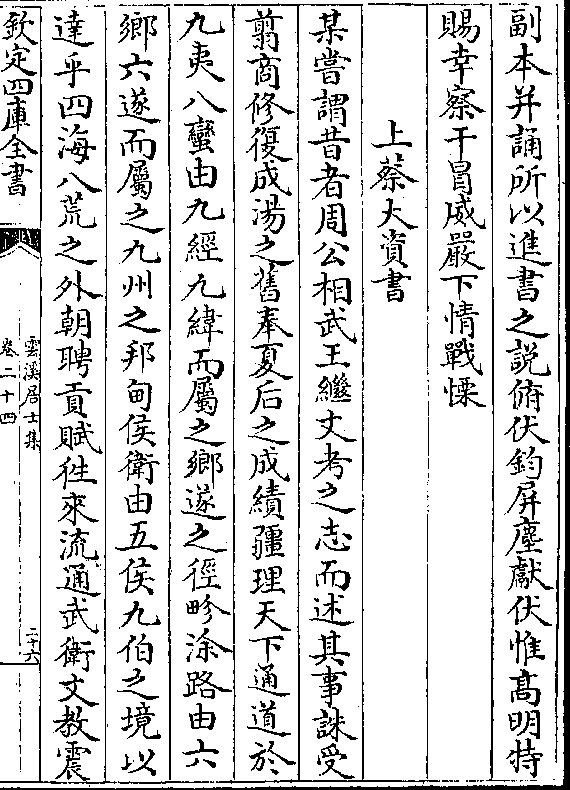 副本并誦所以進書之說俯伏鈞屏塵獻伏惟髙明特
賜幸察干冒威嚴下情戰慄
上蔡大資書
某嘗謂昔者周公相武王繼文考之志而述其事誅受
翦商修復成湯之舊奉夏后之成績疆理天下通道於
九夷八蠻由九經九緯而屬之鄉遂之徑畛涂路由六
鄉六遂而屬之九州之邦甸侯衛由五侯九伯之境以
達乎四海八荒之外朝聘貢賦徃來流通武衛文教震
欽定四庫全書
雲溪居士集
卷二十四
二十六